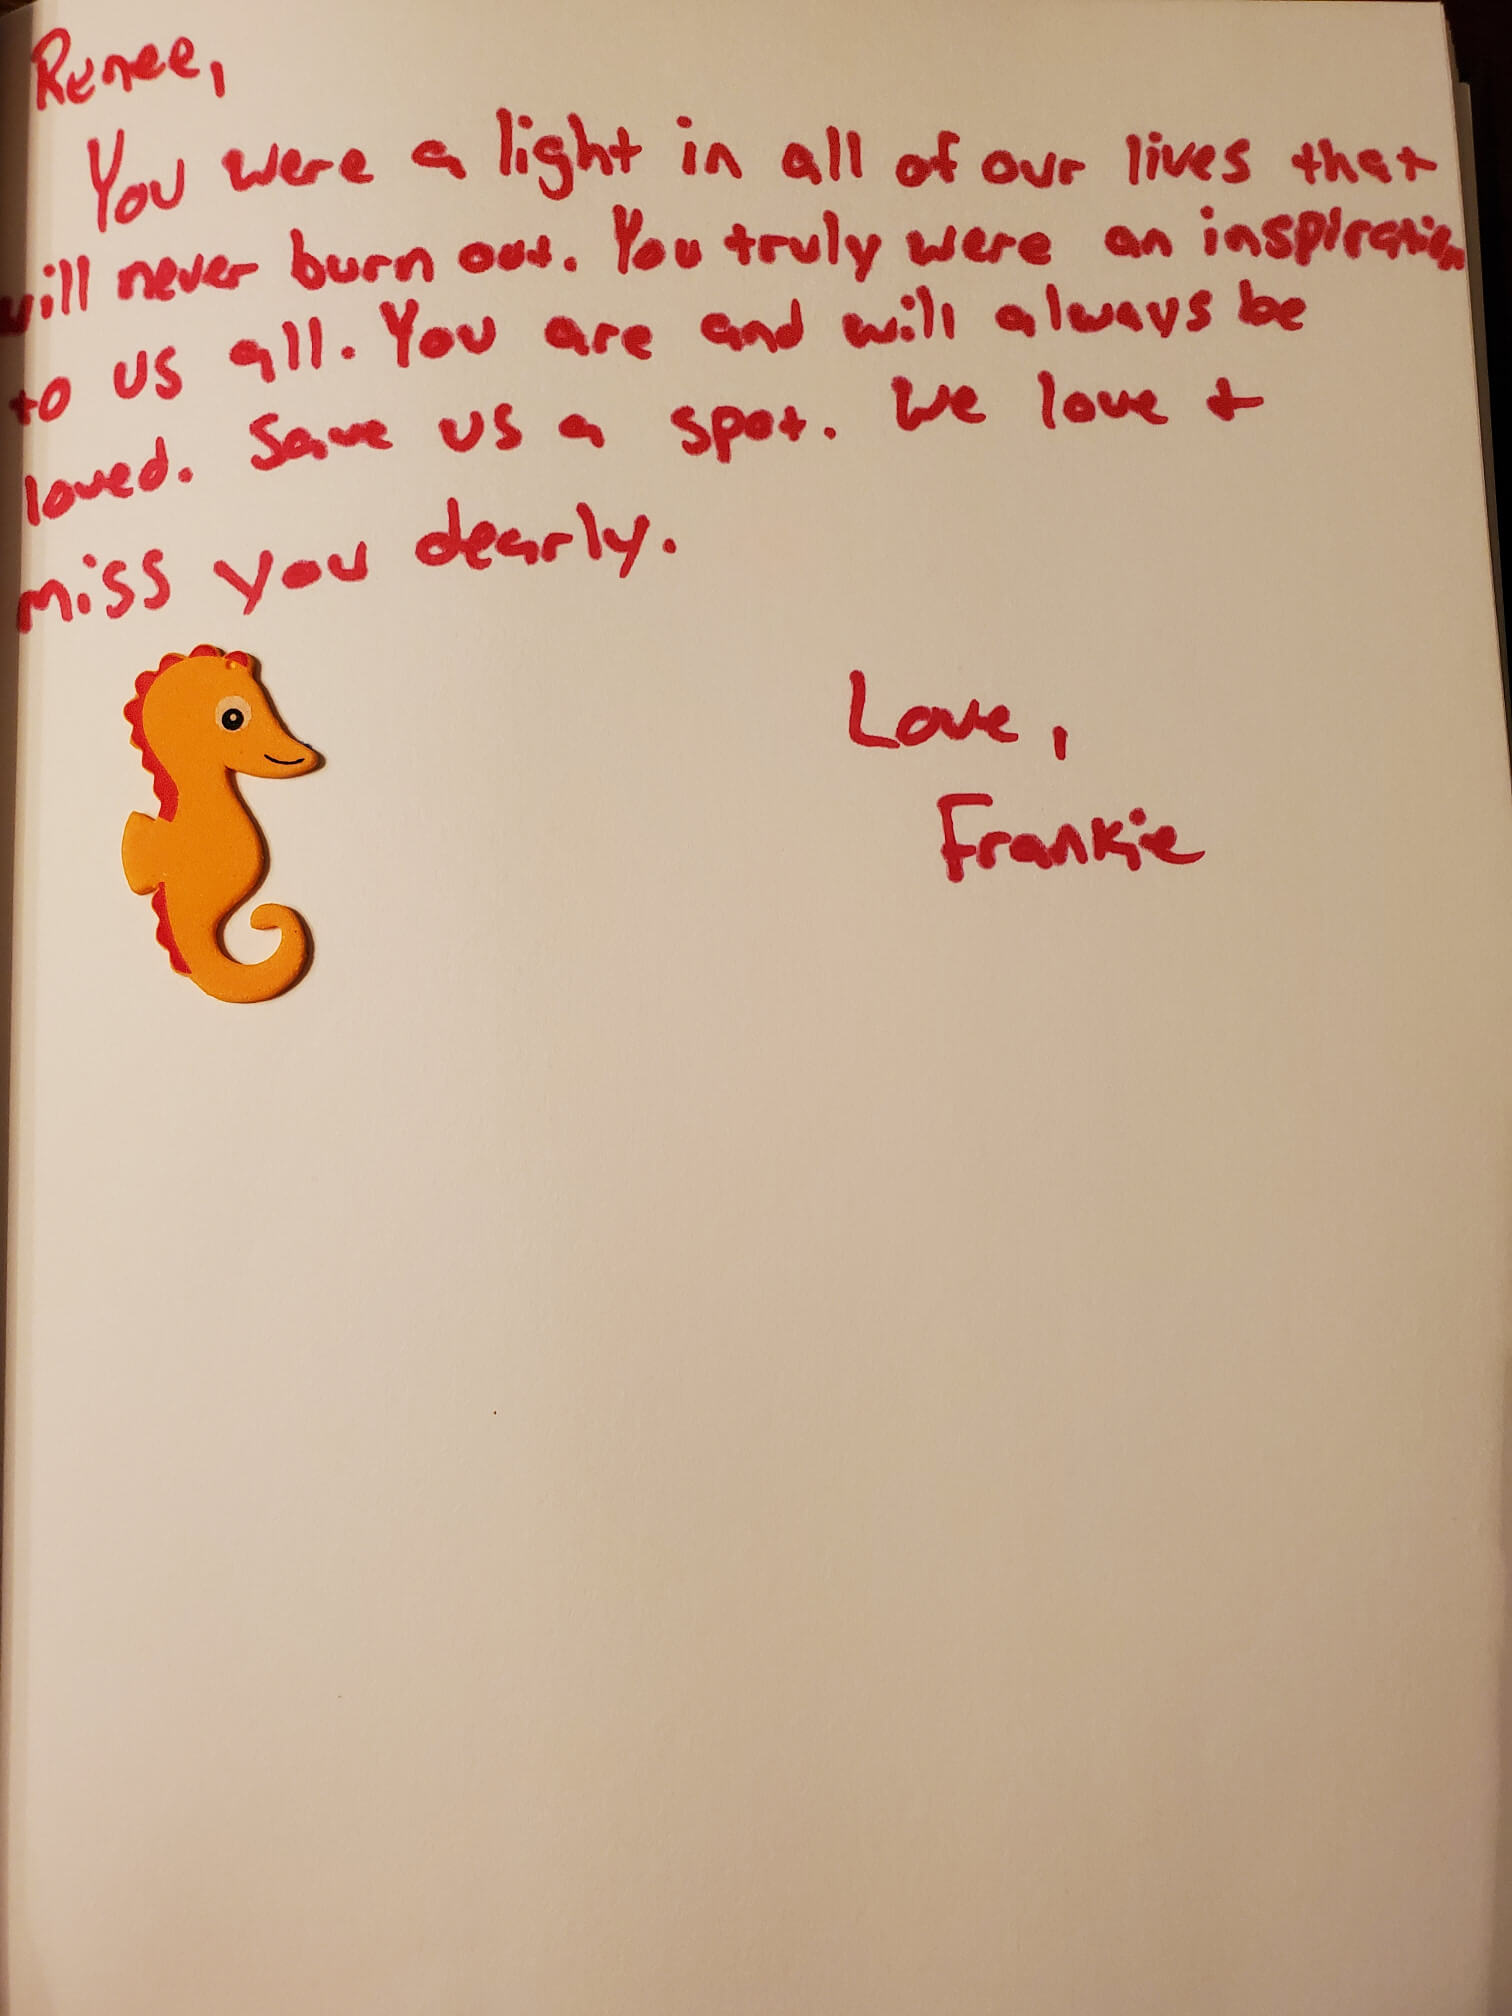 Renee,
You were a light in all of our lives that
will never burn out. You truly were an inspiration
to us all. You are and will always be
loved. Save us a spot. We love +
miss you dearly.
Love,
Frankie